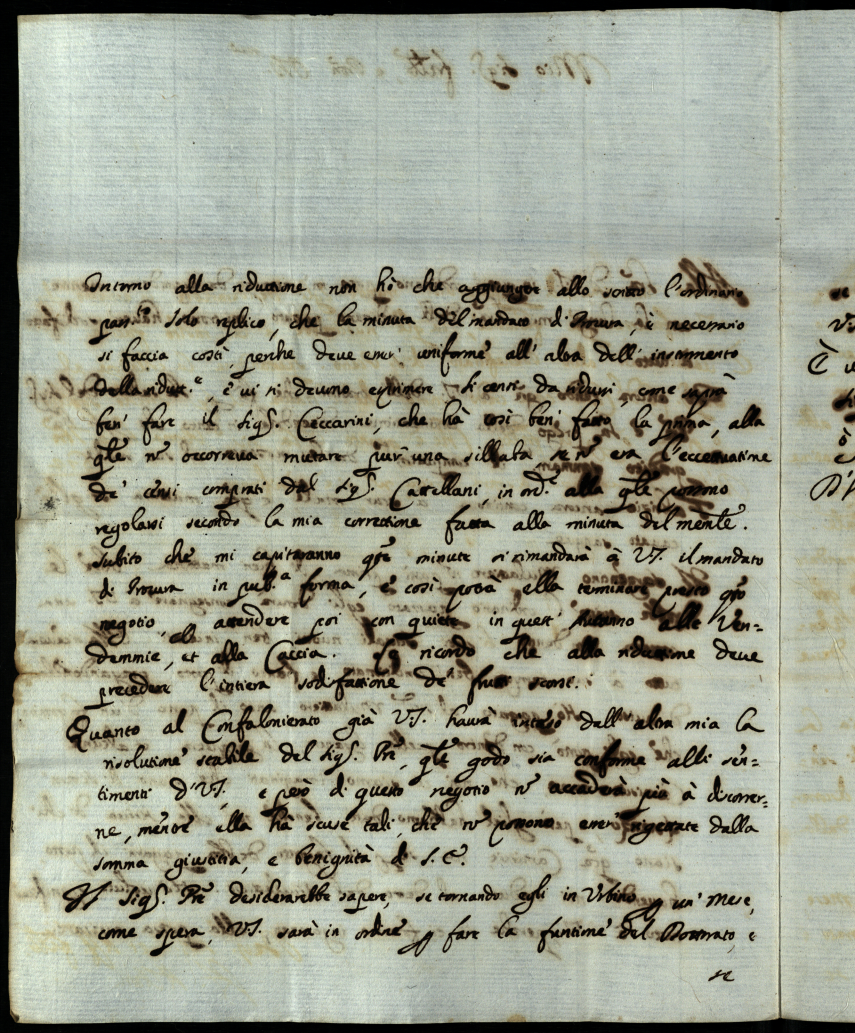 Intorno alla riduttione non hò che aggiunger allo scritto l'ordinario
pass.to solo replico, che la minuta del mandato di Procura è necessario
si faccia costì, perche deve esser' uniforme all' altra dell' instrumento
della ridutt.e, e vi si devono esprimere li censi da ridursi, come saprà
ben' fare il Sig.r Ceccarini, che hà così ben' fatto la prima, alla
qle nō occorreva mutare pur' una sillaba se nō era l'eccettuatione
de' censi comprati dal Sig.r Castellani, in ord.e alla qle possono
regolarsi secondo la mia correttione fatta alla minuta del mente.
Subito che mi capitaranno qte minute si rimandarà à V.S. il mandato
di Procura in pub.a forma, e così potrà ella terminare presto qto
negotio, et attendere poi con quiete in quest' Autunno alle Ven=
demmie, et alla Caccia. Le ricordo che alla riduttione deve
precedere l'intiera sodisfattione de' frutti scorsi.
Quanto al Confalonierato già V.S. haurà inteso dall' altra mia la
risolutione stabile del Sig.r Pre, qle godo sia conforme alli sen=
timenti d'V.S. e però di questo negotio nō accaderà più à discorrer=
ne, mentre ella hà scuse tali, che nō possono esser' rigettate dalla
somma giustitia, e benignità di S.E.
Il Sig.r Pre desiderarebbe sapere, se tornando egli in Urbino p un' mese,
come spera, V.S. sarà in ordine p fare la funtione del Dottorato, e
se